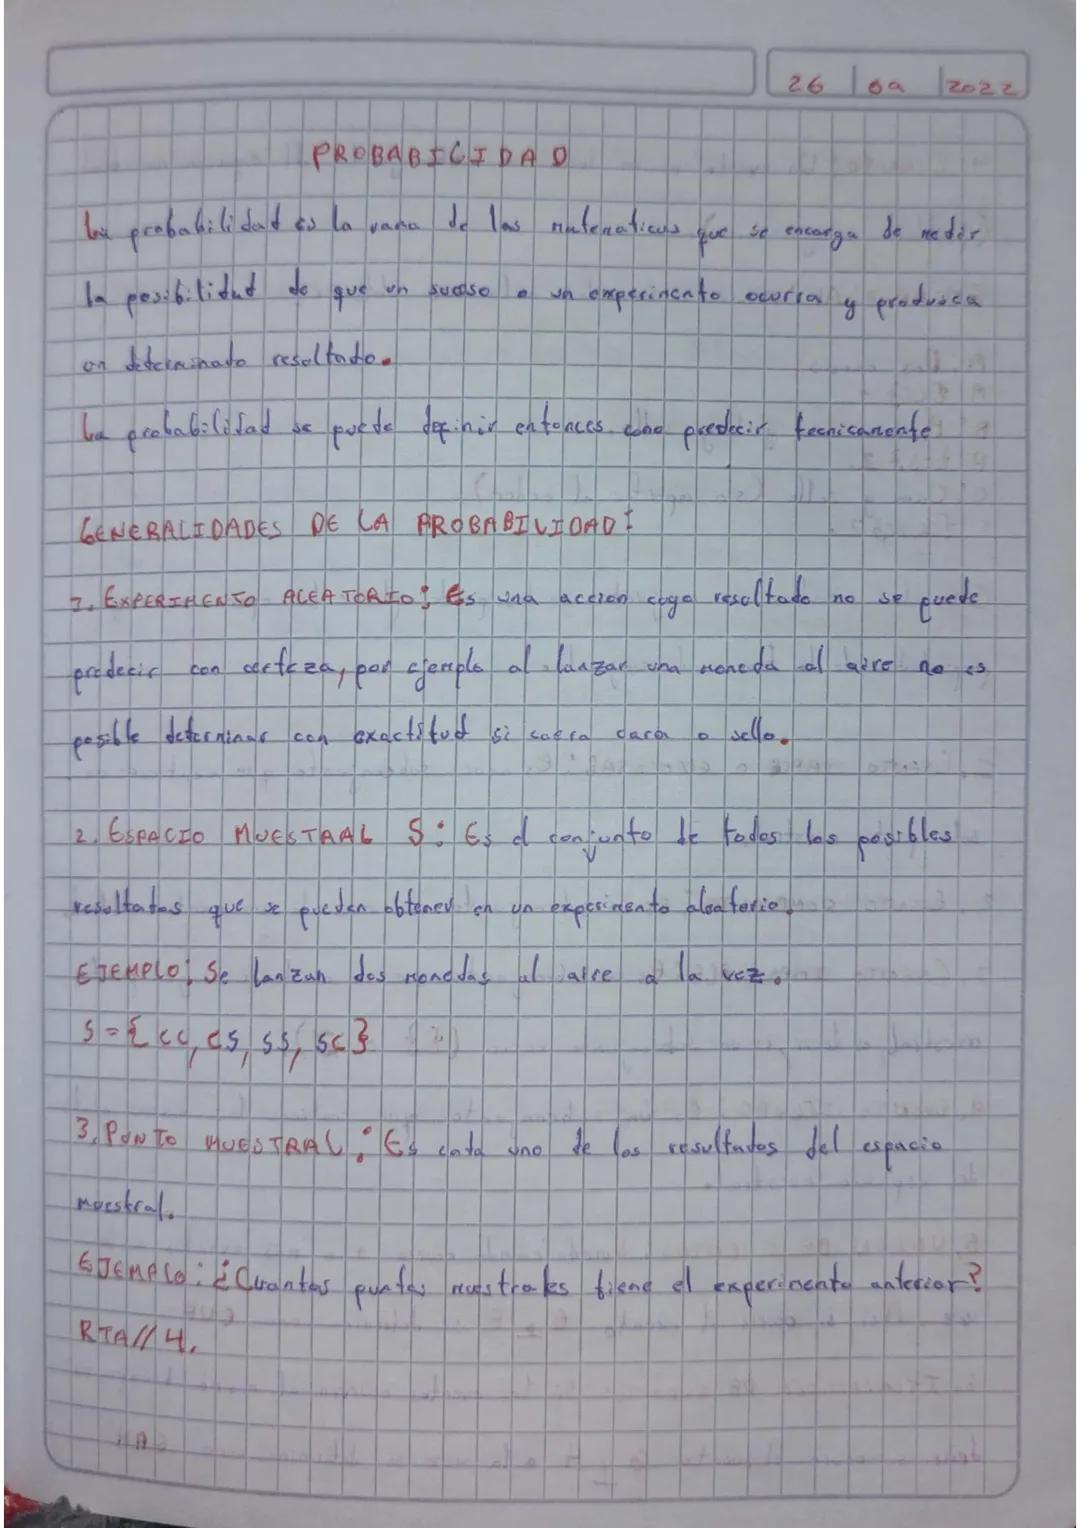 26 09 2022
PROBABILIDAD
La probabilidad es la rama de las matematicas que se encarga de medir
la posibilidad de que un suceso o un experimento ocurra y produzca
un determinado resultado.
La probabilidad se puede definir entonces como predecir tecnicamente
GENERALIDADES DE LA PROBABILIDAD:
1. EXPERIMENTO ALEATORIO: Es una accion cuyo resultado no se puede
predecir con certeza, por ejemplo al lanzar una moneda al aire no es
posible determinar con exactitud si caera cara o sello.
2. ESPACIO MUESTRAL S: Es el conjunto de todos los posibles
resultados que se pueden obtener en un experimento aleatorio.
EJEMPLO: Se lanzan dos monedas al aire a la vez.
S = { cc, cs, ss, sc }
3. PUNTO MUESTRAL: Es cada uno de los resultados del espacio
muestral.
EJEMPLO: ¿Cuantos puntos muestrales tiene el experimento anterior?
RTA// 4.